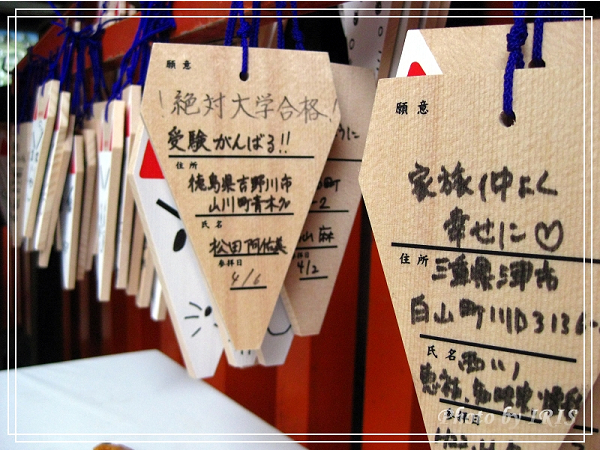 願意
絶対大学合格!
受験がんばる!!
住所
徳島県吉野川市
山川町青木
氏名
松田阿佑美
参拝日
4/6
山麻
4/2
願意
家族仲よく
幸せに♡
住所
三重県津市
白山町川口3136
氏名
西川
参拝日
Photo by IRIS